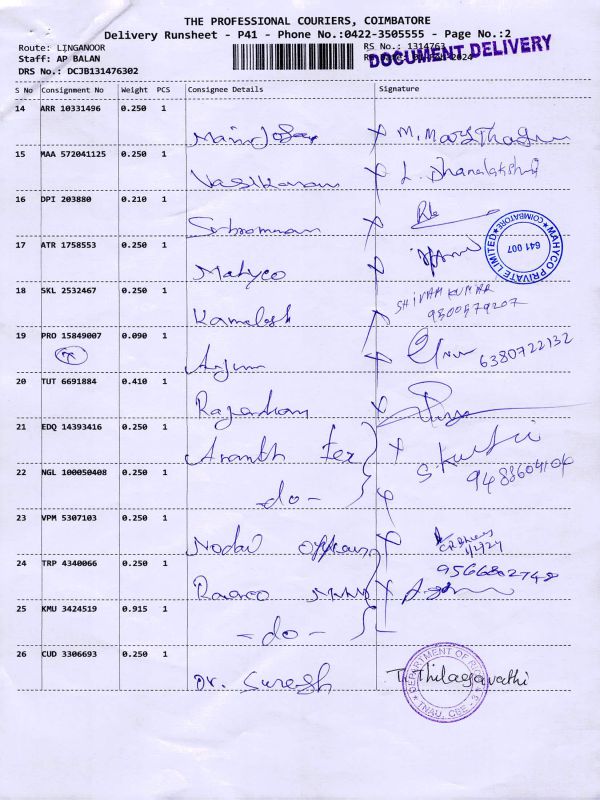 THE PROFESSIONAL COURIERS, COIMBATORE
Delivery Runsheet - P41 - Phone No.:0422-3505555 - Page No.:2
Route: LINGANOOR
RS No.: 1314763
DOCUMENT DELIVERY
Staff: AP BALAN
DRS No.: DCJB131476302
S No Consignment No Weight PCS Consignee Details Signature
14 ARR 10331496 0.250 1
M. Mary
15 MAA 572041125 0.250 1
Vasikaran L. Dhanalakshmi
16 DPI 203880 0.210 1
17 ATR 1758553 0.250 1
Mahyco
MAHYCO PRIVATE LIMITED COIMBATORE
641 007
18 SKL 2532467 0.250 1
Kamalesh SHIVAM KUMAR
9500579207
19 PRO 15849007 0.090 1
Arjun 6380722132
20 TUT 6691884 0.410 1
21 EDQ 14393416 0.250 1
Ananth Tex
22 NGL 100050408 0.250 1
9488604104
-do-
23 VPM 5307103 0.250 1
Nodal
1/2/24
24 TRP 4340066 0.250 1
9566802748
25 KMU 3424519 0.915 1
-do-
26 CUD 3306693 0.250 1
Dr. Suresh T. Thilagavathi
DEPARTMENT OF
TNAU, CBE - 3